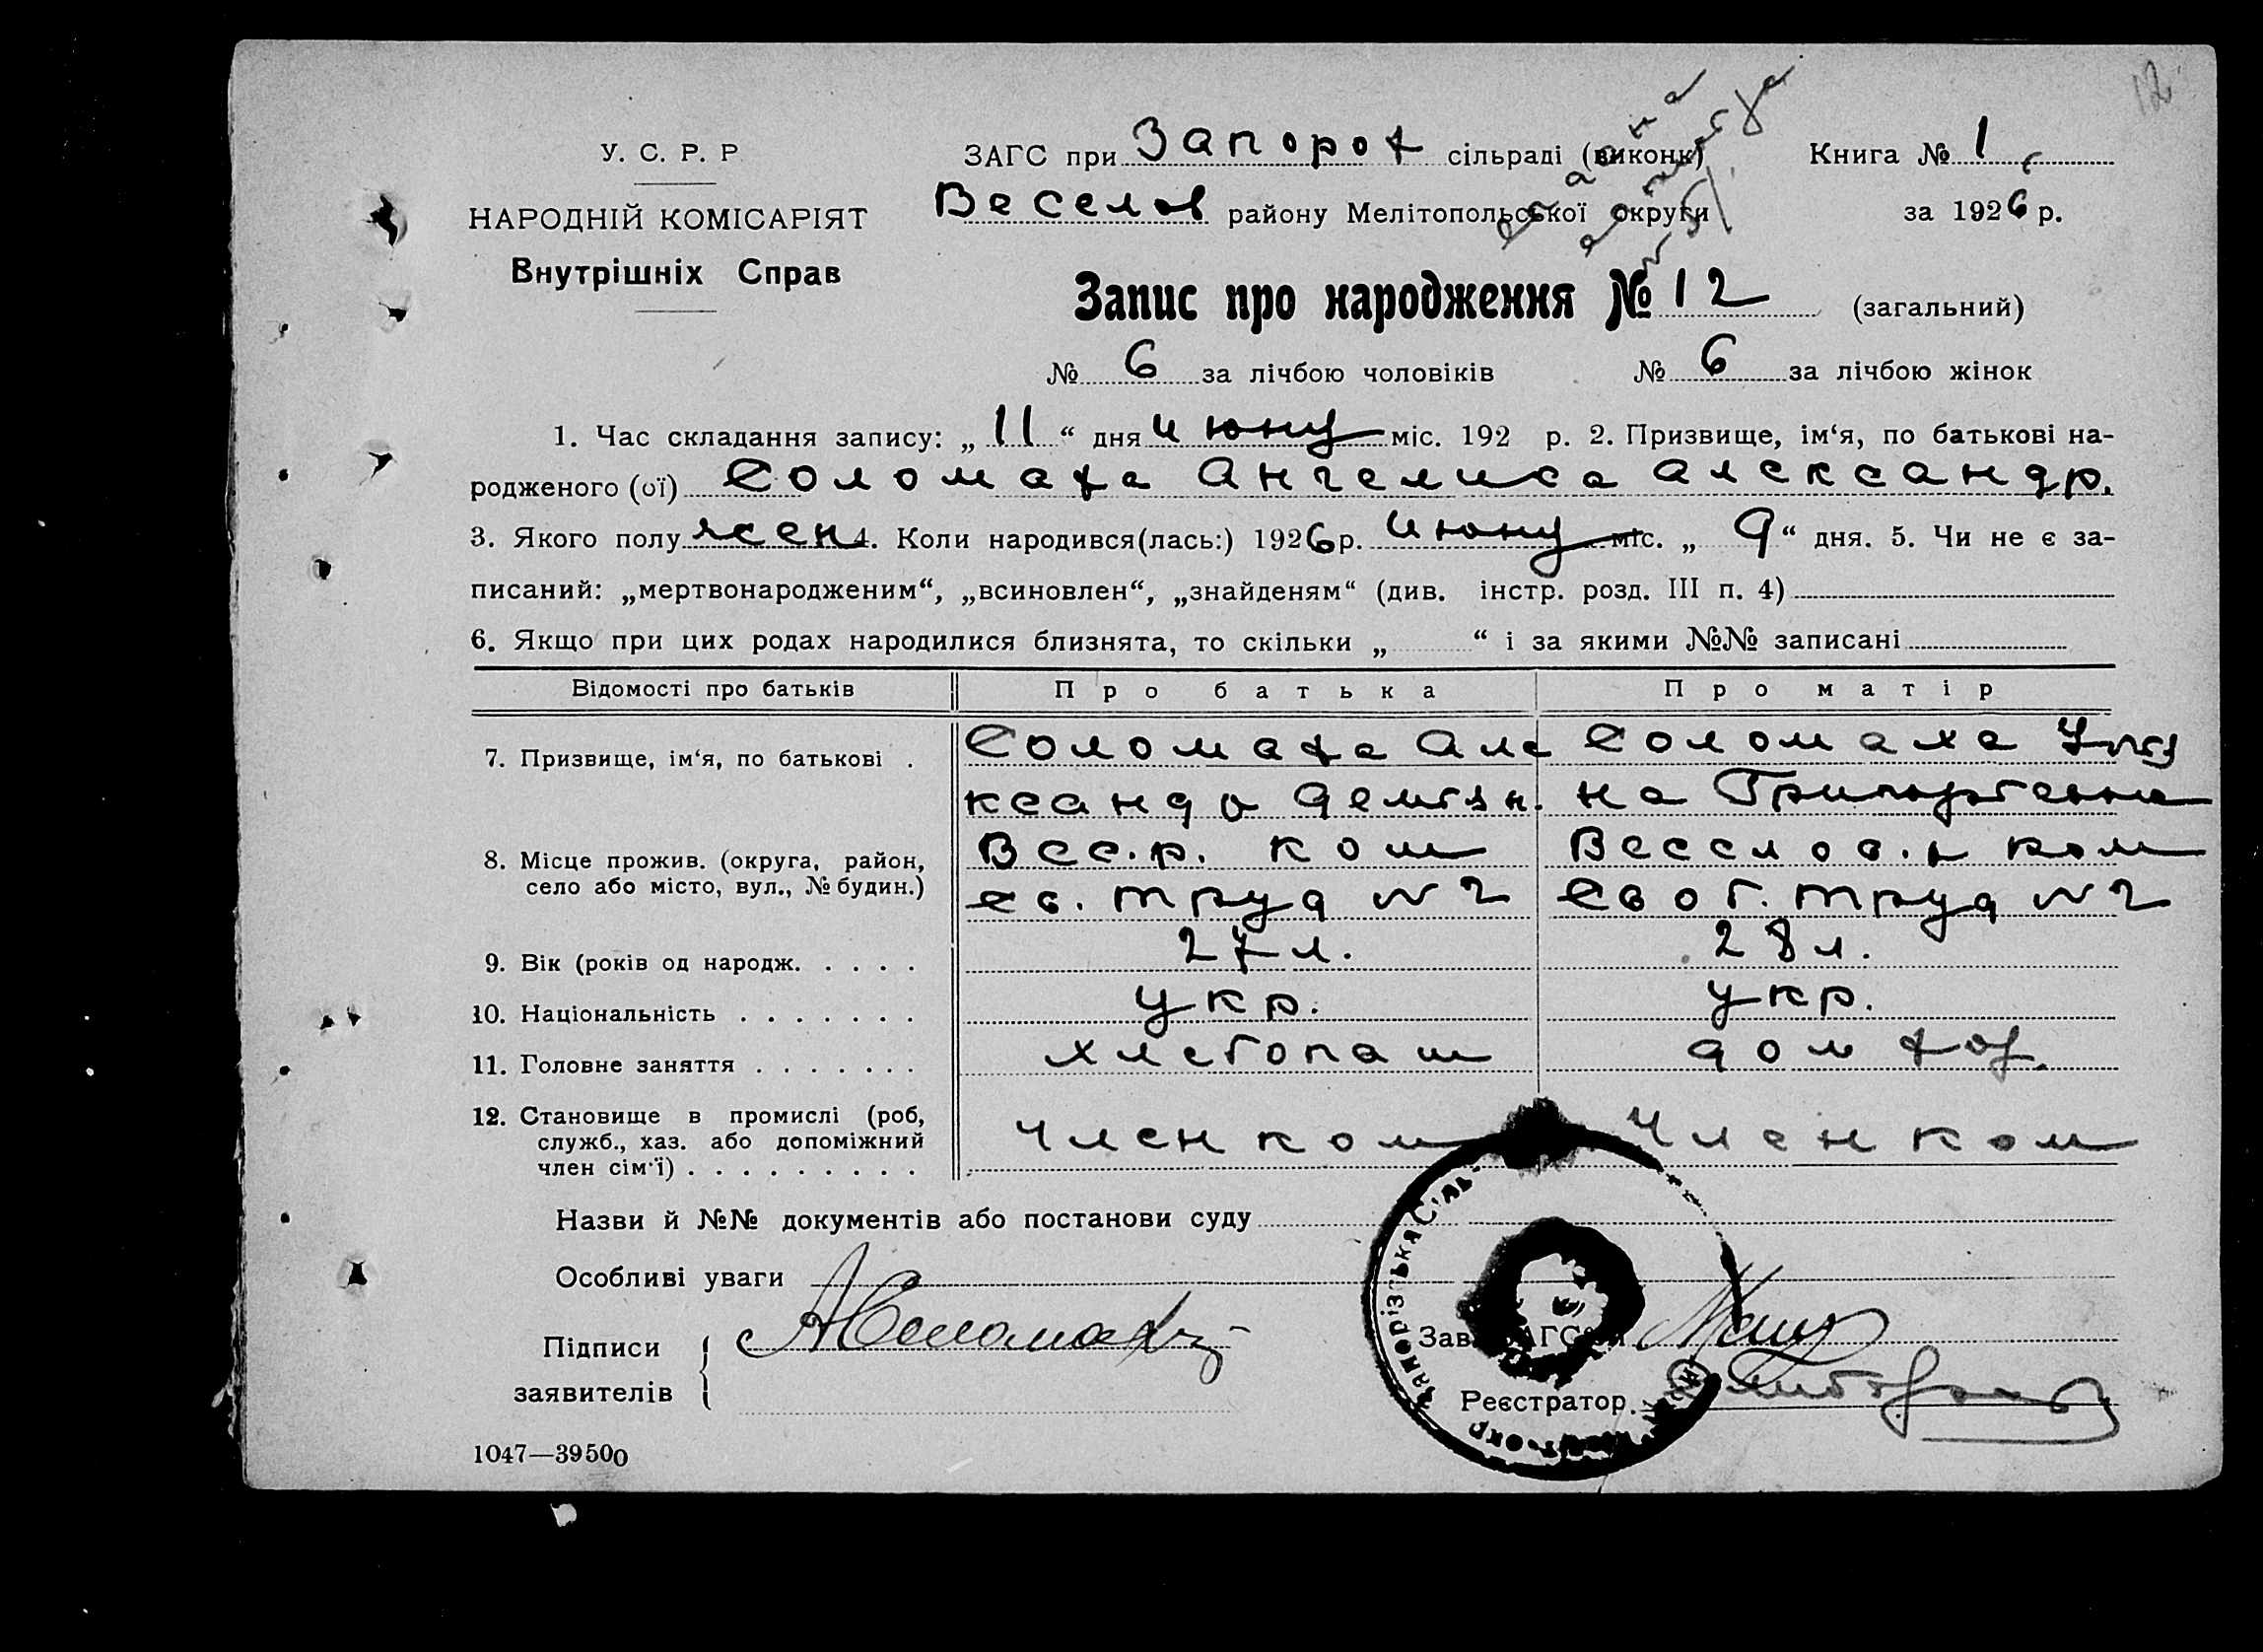 12
У. С. Р. Р
НАРОДНІЙ КОМІСАРІЯТ
Внутрішніх Справ
ЗАГС при Запорож сільраді (виконк)
Веселов району Мелітопольської округи
Книга № 1
за 1926 р.
Запис про народження № 12 (загальний)
№ 6 за лічбою чоловіків № 6 за лічбою жінок
1. Час складання запису: „ 11 “ дня июну міс. 192 р. 2. Призвище, ім‘я, по батькові на-
родженого (ої) Соломаха Ангелиса Александр.
3. Якого полу жен 4. Коли народився(лась:) 1926 р. июну міс. „ 9 “ дня. 5. Чи не є за-
писаний: „мертвонародженим“, „всиновлен“, „знайденям“ (див. інстр. розд. III п. 4)
6. Якщо при цих родах народилися близнята, то скільки „ “ і за якими №№ записані
Відомості про батьків Про батька Про матір
7. Призвище, ім‘я, по батькові . Соломаха Але Соломаха
ксандр Демьян. на Григорьевна
8. Місце прожив. (округа, район, Вес.р. ком Веселов.р ком
село або місто, вул., № будин.) св. труд №2 своб. труд №2
9. Вік (років од народж. . . . . 27 л. 28 л.
10. Національність . . . . . . . укр. укр.
11. Головне заняття . . . . . . . хлебопаш дом хоз.
12. Становище в промислі (роб,
служб., хаз. або допоміжний член ком член ком
член сім‘ї) . . . . . . . . .
Назви й №№ документів або постанови суду
Особливі уваги
Підписи
заявителів
А Соломаха
Зав. ЗАГС‘ом
Реєстратор.
Запорізька Сіль
1047—39500